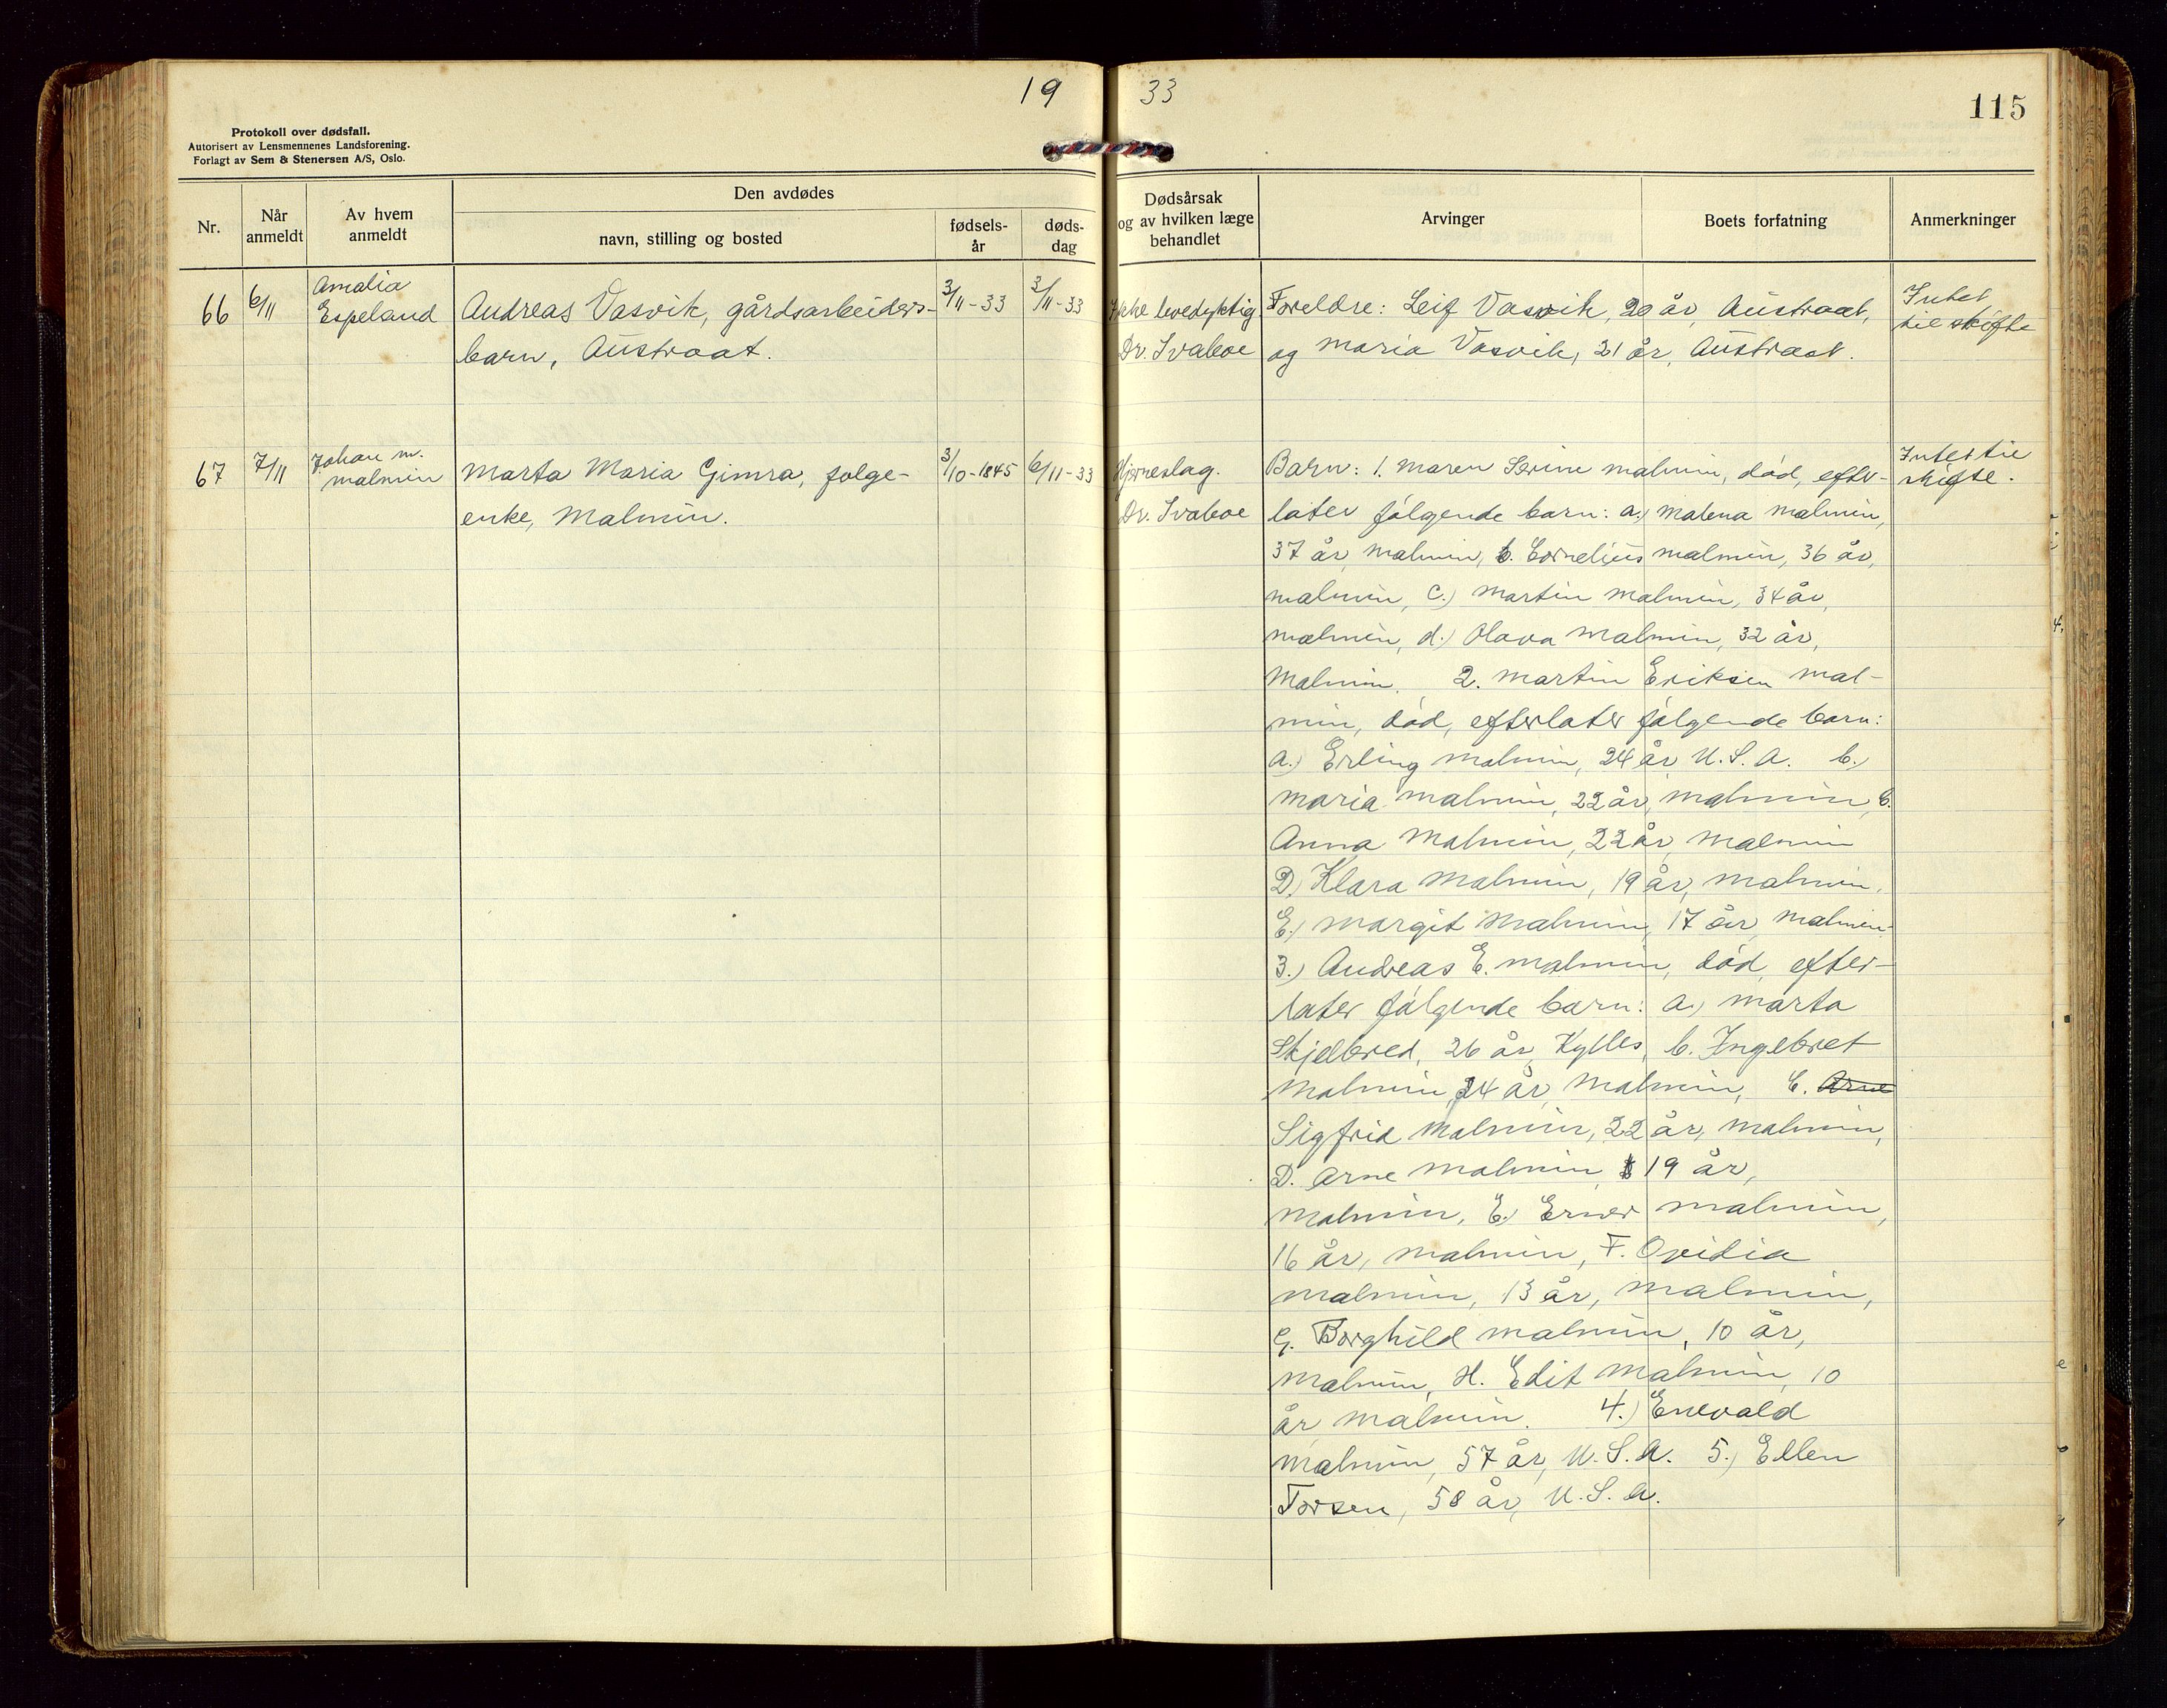 19 33
115
Protokoll over dødsfall.
Autorisert av Lensmennenes Landsforening.
Forlagt av Sem & Stenersen A/S, Oslo.
Nr.
Når anmeldt
Av hvem anmeldt
Den avdødes
navn, stilling og bosted
fødsels-år
døds-dag
Dødsårsak og av hvilken læge behandlet
Arvinger
Boets forfatning
Anmerkninger
66
6/11
Amalia
Espeland
Andreas Vasvik, gårdsarbeiders-
barn, Austraat.
3/11-33
3/11-33
Ikke levedyktig
Dr. Svaboe
Foreldre: Leif Vasvik, 20 år, Austraat,
og Maria Vasvik, 21 år, Austraat.
Intet
til skifte
67
7/11
Johan M.
Malmin
Marta Maria Gimra, folge-
enke, Malmin.
3/10-1845
6/11-33
Hjerneslag.
Dr. Svaboe
Barn: 1. Maren Serine Malmin, død, efter-
later følgende barn: a.) Malena Malmin,
37 år, Malmin, b. Cornelius Malmin, 36 år,
Malmin, c.) Martin Malmin, 34 år,
Malmin, d.) Olava Malmin, 32 år,
Malmin. 2. Martin Eriksen Mal-
min, død, efterlater følgende barn:
a.) Erling Malmin, 24 år, U.S.A. b.)
Maria Malmin, 22 år, Malmin, C.
Anna Malmin, 22 år, Malmin
D.) Klara Malmin, 19 år, Malmin.
E.) Margit Malmin, 17 år, Malmin.
3.) Andreas E. Malmin, død, efter-
later følgende barn: a.) Marta
Skjelbred, 26 år, Kylles, b. Ingebret
Malmin, 24 år, Malmin, C. Arne
Sigfrid Malmin, 22 år, Malmin,
D. Arne Malmin, 19 år,
Malmin, E.) Erner Malmin,
16 år, Malmin, F. Ovidia
Malmin, 13 år, Malmin,
G. Borghild Malmin, 10 år,
Malmin, H. Edit Malmin, 10
år, Malmin. 4.) Enevald
Malmin, 57 år, U.S.A. 5.) Ellen
Torsen, 58 år, U.S.A.
Intet til
skifte.